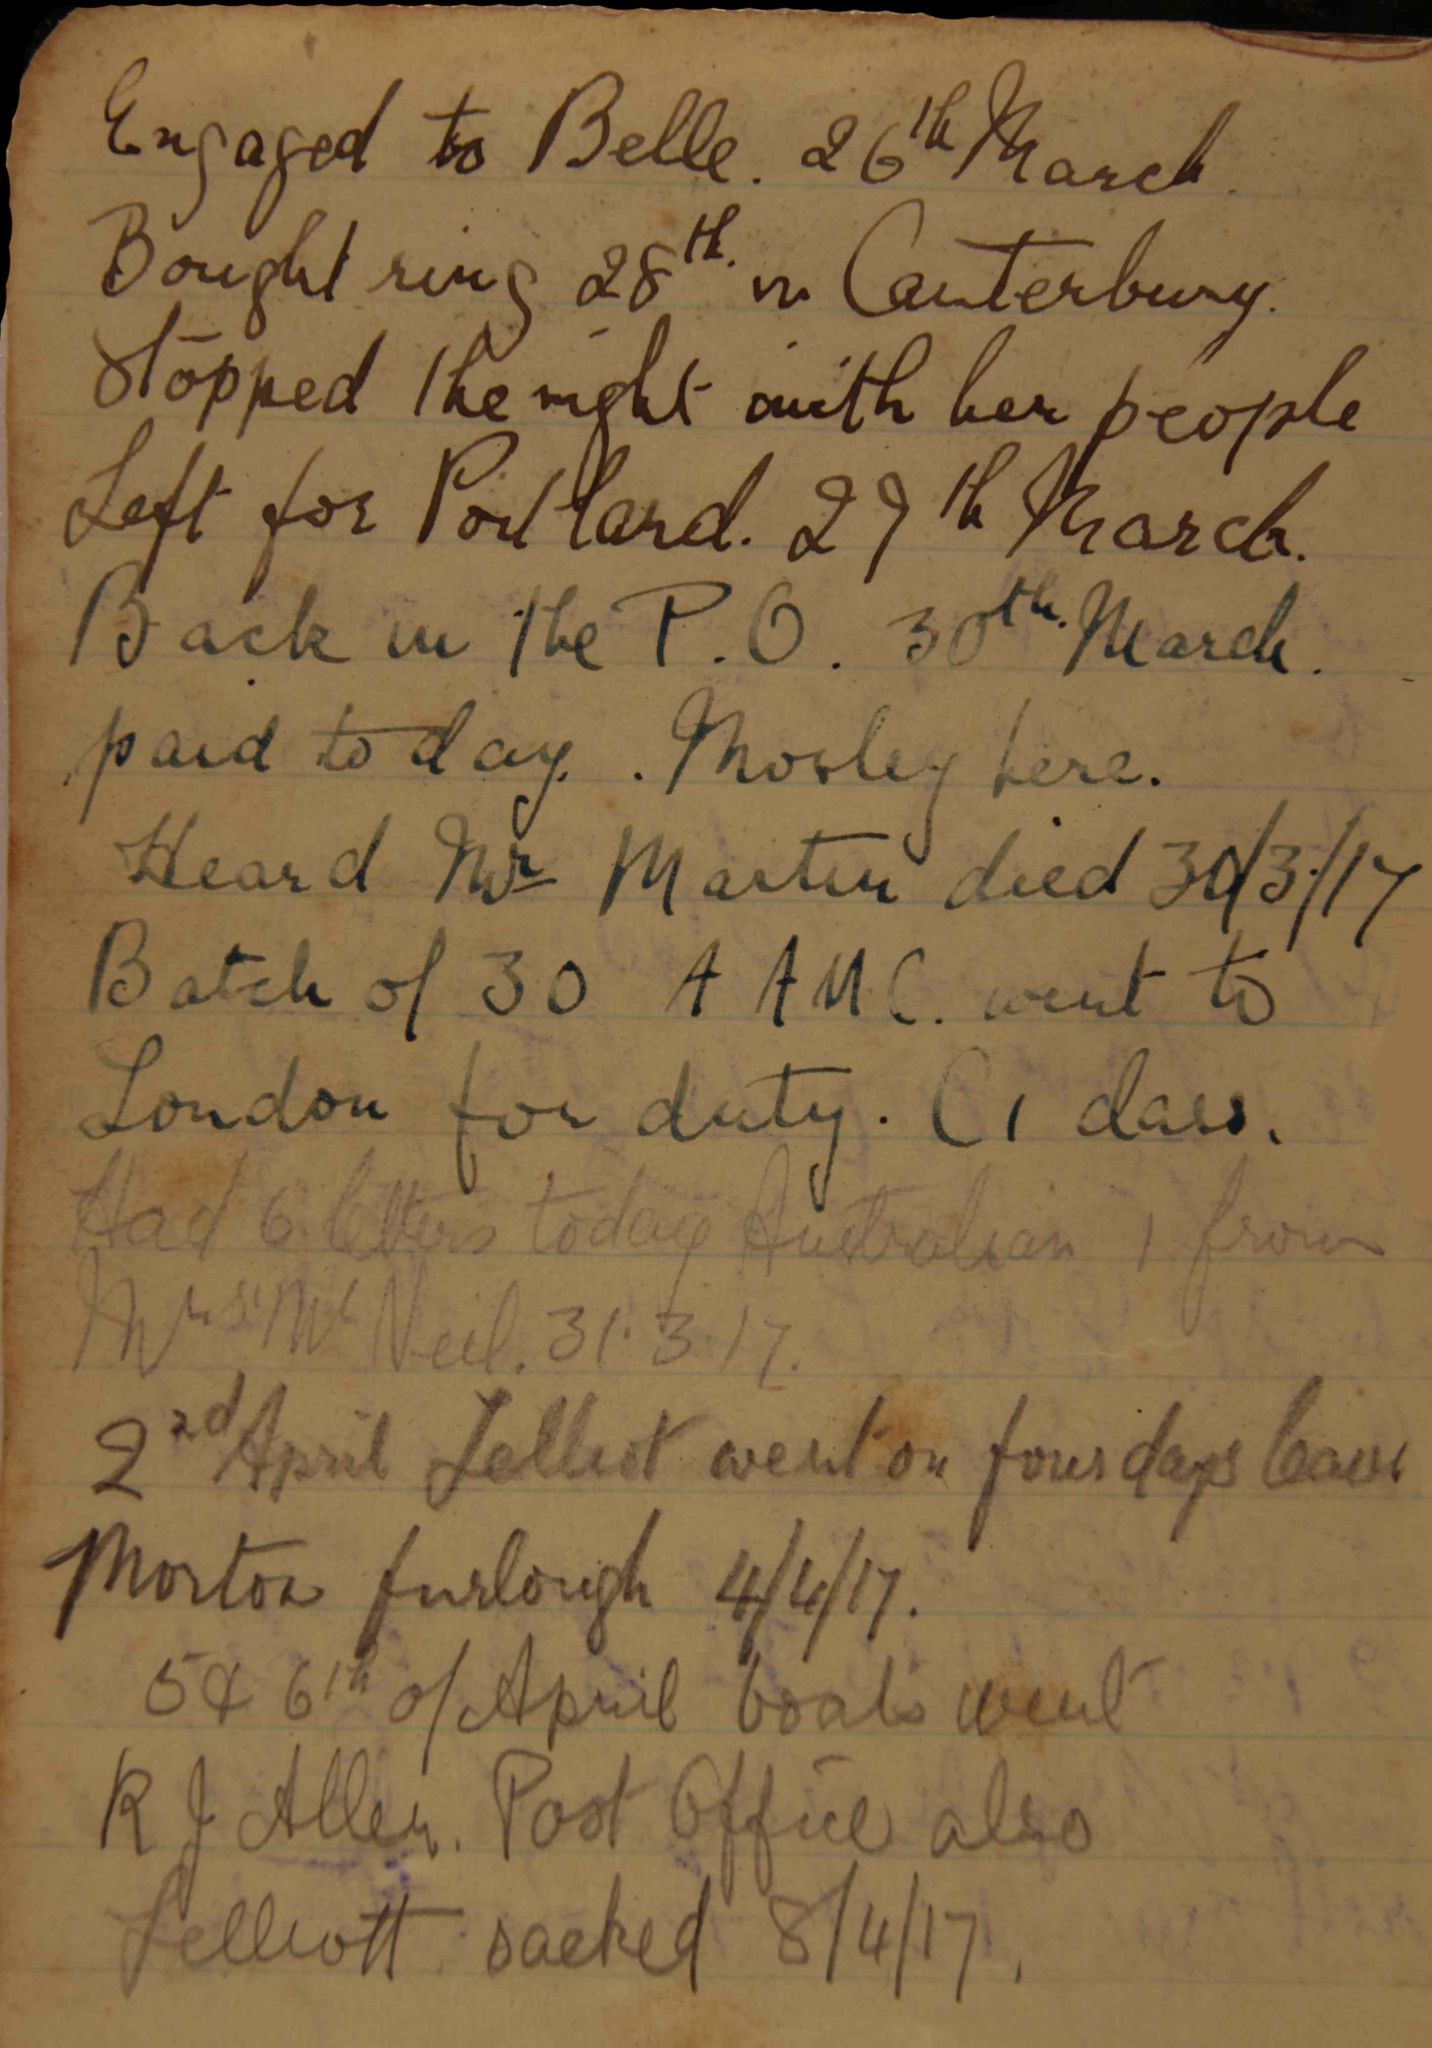 Engaged to Belle. 26th March.
Bought ring 28th. in Canterbury.
Stopped the night with her people
Left for Portland. 29th March.
Back in the P.O. 30th. March.
paid to day. Morley here.
Heard Mr Martin died 30/3/17
Batch of 30 A A M C. went to
London for duty. C1 class.
Had 6 letters today Australian 1 from
Mrs. Mc Neil. 31.3.17.
2nd April Lelliot went on four days leave
Morton furlough 4/4/17.
5 & 6th of April boats went
R J Allen. Post Office also
Lelliott sacked 8/4/17.